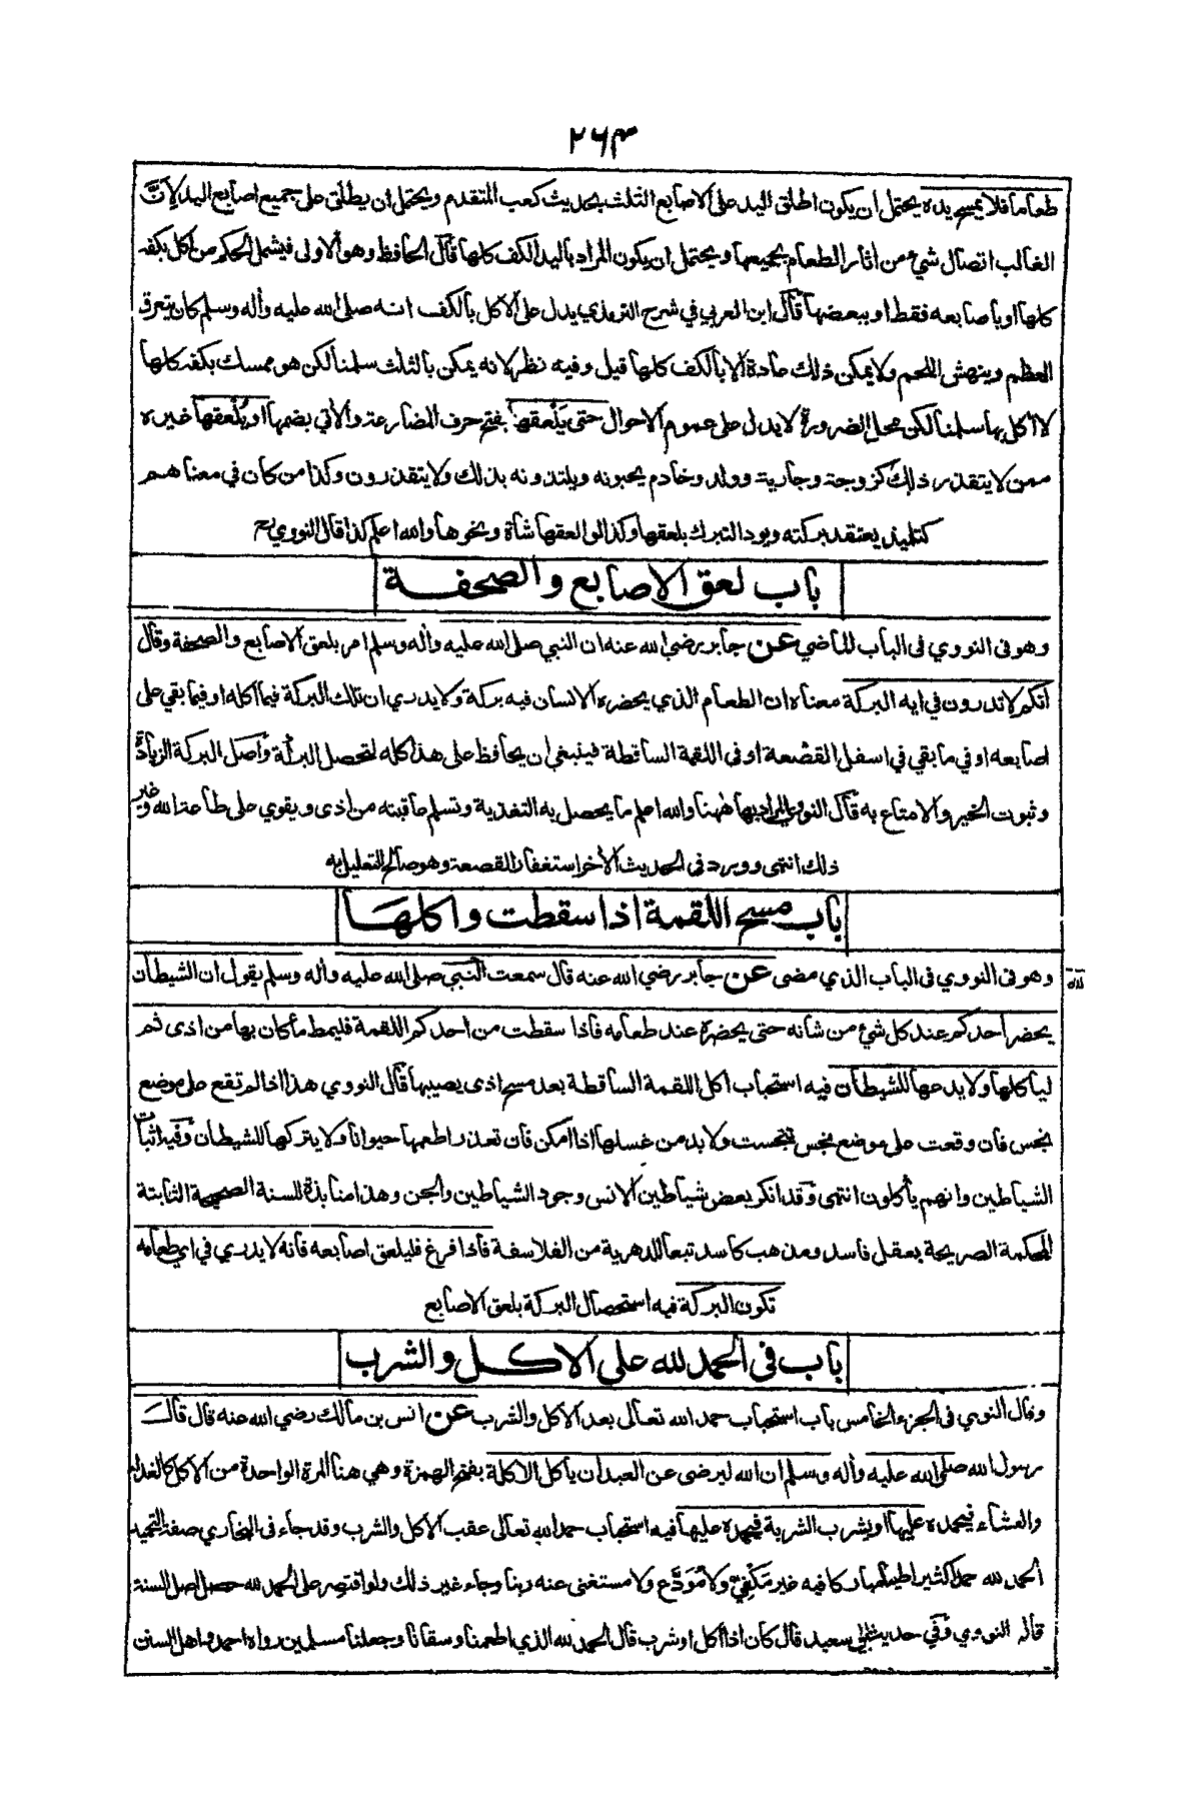 ٢٦٣
طعاما فلا يمسح يده يحتمل ان يكون اطلق اليد على الاصابع الثلث بحديث كعب المتقدم ويحتمل ان يطلق على جميع اصابع اليد لانّ
الغالب اتصال شيء من اثار الطعام بجميعها ويحتمل ان يكون المراد باليد الكف كلها قال الحافظ وهو الاولى فيشمل الحكم من اكل بكفه
كلها او باصابعه فقط او ببعضها قال ابن العربي في شرح الترمذي يدل على الاكل بالكف انه صلى الله عليه وأله وسلم كان يتعرق
العظم وينهش اللحم ولا يمكن ذلك عادة الا بالكف كلها قيل وفيه نظر لانه يمكن بالثلث سلمنا لكن هو ممسك بكفه كلها
لا اكل بها سلمنا لكن محل الضرورة لا يدل على عموم الاحوال حتى يَلْعقها بفتح حرف المضارعة والأتي بضمها او يُلْعقها غيره
ممن لا يتقذر ذلك كزوجة وجارية وولد وخادم يحبونه ويلتذونه بذلك ولا يتقذرون وكذا من كان في معناهم
كتلميذ يعتقد بركته ويود التبرك بلعقها وكذا لو العقها شاة ونحوها والله اعلم كذا قال النووي رح
باب لعق الاصابع والصحفة
وهو في النووي في الباب الماضي عن جابر رضي الله عنه ان النبي صلى الله عليه وأله وسلم امر بلعق الاصابع والصحفة وقال
انكم لا تدرون في ايه البركة معناه ان الطعام الذي يحضره الانسان فيه بركة ولا يدري ان تلك البركة فيما أكله او فيما بقي على
اصابعه او في ما بقي في اسفل القصعة او في اللقمة الساقطة فينبغي ان يحافظ على هذا كله لتحصل البركة واصل البركة الزيادة
وثبوت الخير والامتاع به قال النووي المراد بها ههنا والله اعلم ما يحصل به التغذية وتسلم عاقبته من اذى ويقوي على طاعة الله وغير
ذلك انتهى وورد في الحديث الأخر استغفار القصعة وهو صالح التعليل به
باب مسح اللقمة اذا سقطت واكلها
وهو في النووي في الباب الذي مضى عن جابر رضي الله عنه قال سمعت النبي صلى الله عليه وأله وسلم يقول ان الشيطان
يحضر احدكم عند كل شيء من شانه حتى يحضره عند طعامه فاذا سقطت من احدكم اللقمة فليمط ما كان بها من اذى ثم
ليأكلها ولا يدعها للشيطان فيه استحباب اكل اللقمة الساقطة بعد مسح اذى يصيبها قال النووي هذا اذا لم تقع على موضع
نجس فان وقعت على موضع نجس تنجست ولا بد من غسلها اذا امكن فان تعذر اطعمها حيوانا ولا يتركها للشيطان وفيه اثبات
الشياطين وانهم يأكلون انتهى وقد انكر بعض شياطين الانس وجود الشياطين والجن وهذا منابذة للسنة الصحيحة الثابتة
المحكمة الصريحة بعقل فاسد ومذهب كاسد تبعا للدهرية من الفلاسفة فاذا فرغ فليلعق اصابعه فانه لا يدري في اي طعامه
تكون البركة فيه استحصال البركة بلعق الاصابع
باب في الحمد لله على الاكل والشرب
وقال النووي في الجزء الخامس باب استحباب حمد الله تعالى بعد الاكل والشرب عن انس بن مالك رضي الله عنه قال قال
رسول الله صلى الله عليه وأله وسلم ان الله ليرضى عن العبد ان يأكل الاكلة بفتح الهمزة وهي هنا المرة الواحدة من الاكل كالغداء
والعشاء فيحمده عليها او يشرب الشربة فيحمده عليها فيه استحباب حمد الله تعالى عقب الاكل والشرب وقد جاء في البخاري صفة التحميد
الحمد لله حمدا كثيرا طيبا مباركا فيه غير مَكْفِيٍّ ولا مُوَدَّع ولا مستغنى عنه ربنا وجاء غير ذلك ولو اقتصر على الحمد لله حصل اصل السنة
قاله النووي وفي حديث ابي سعيد قال كان اذا اكل او شرب قال الحمد لله الذي اطعمنا وسقانا وجعلنا مسلمين رواه احمد واهل السنن